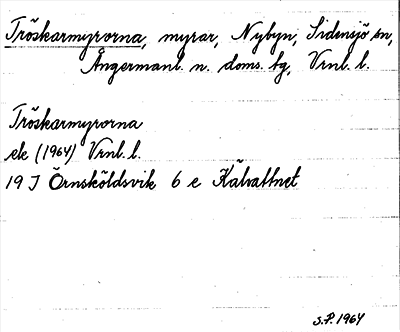 Tröskarmyrorna, myrar, Nybyn, Sidensjö sn,
Ångermanl. n. doms. bg, Vrnl. l.
Tröskarmyrorna
ek (1964) Vrnl. l.
19 J Örnsköldsvik 6 e Kälvattnet
S.P. 1964